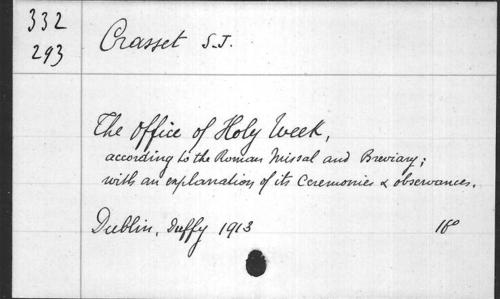 332
293
Crasset S.J.
The Office of Holy Week,
according to the Roman Missal and Breviary;
with an explanation of its Ceremonies & observances.
Dublin, Duffy 1913 18°